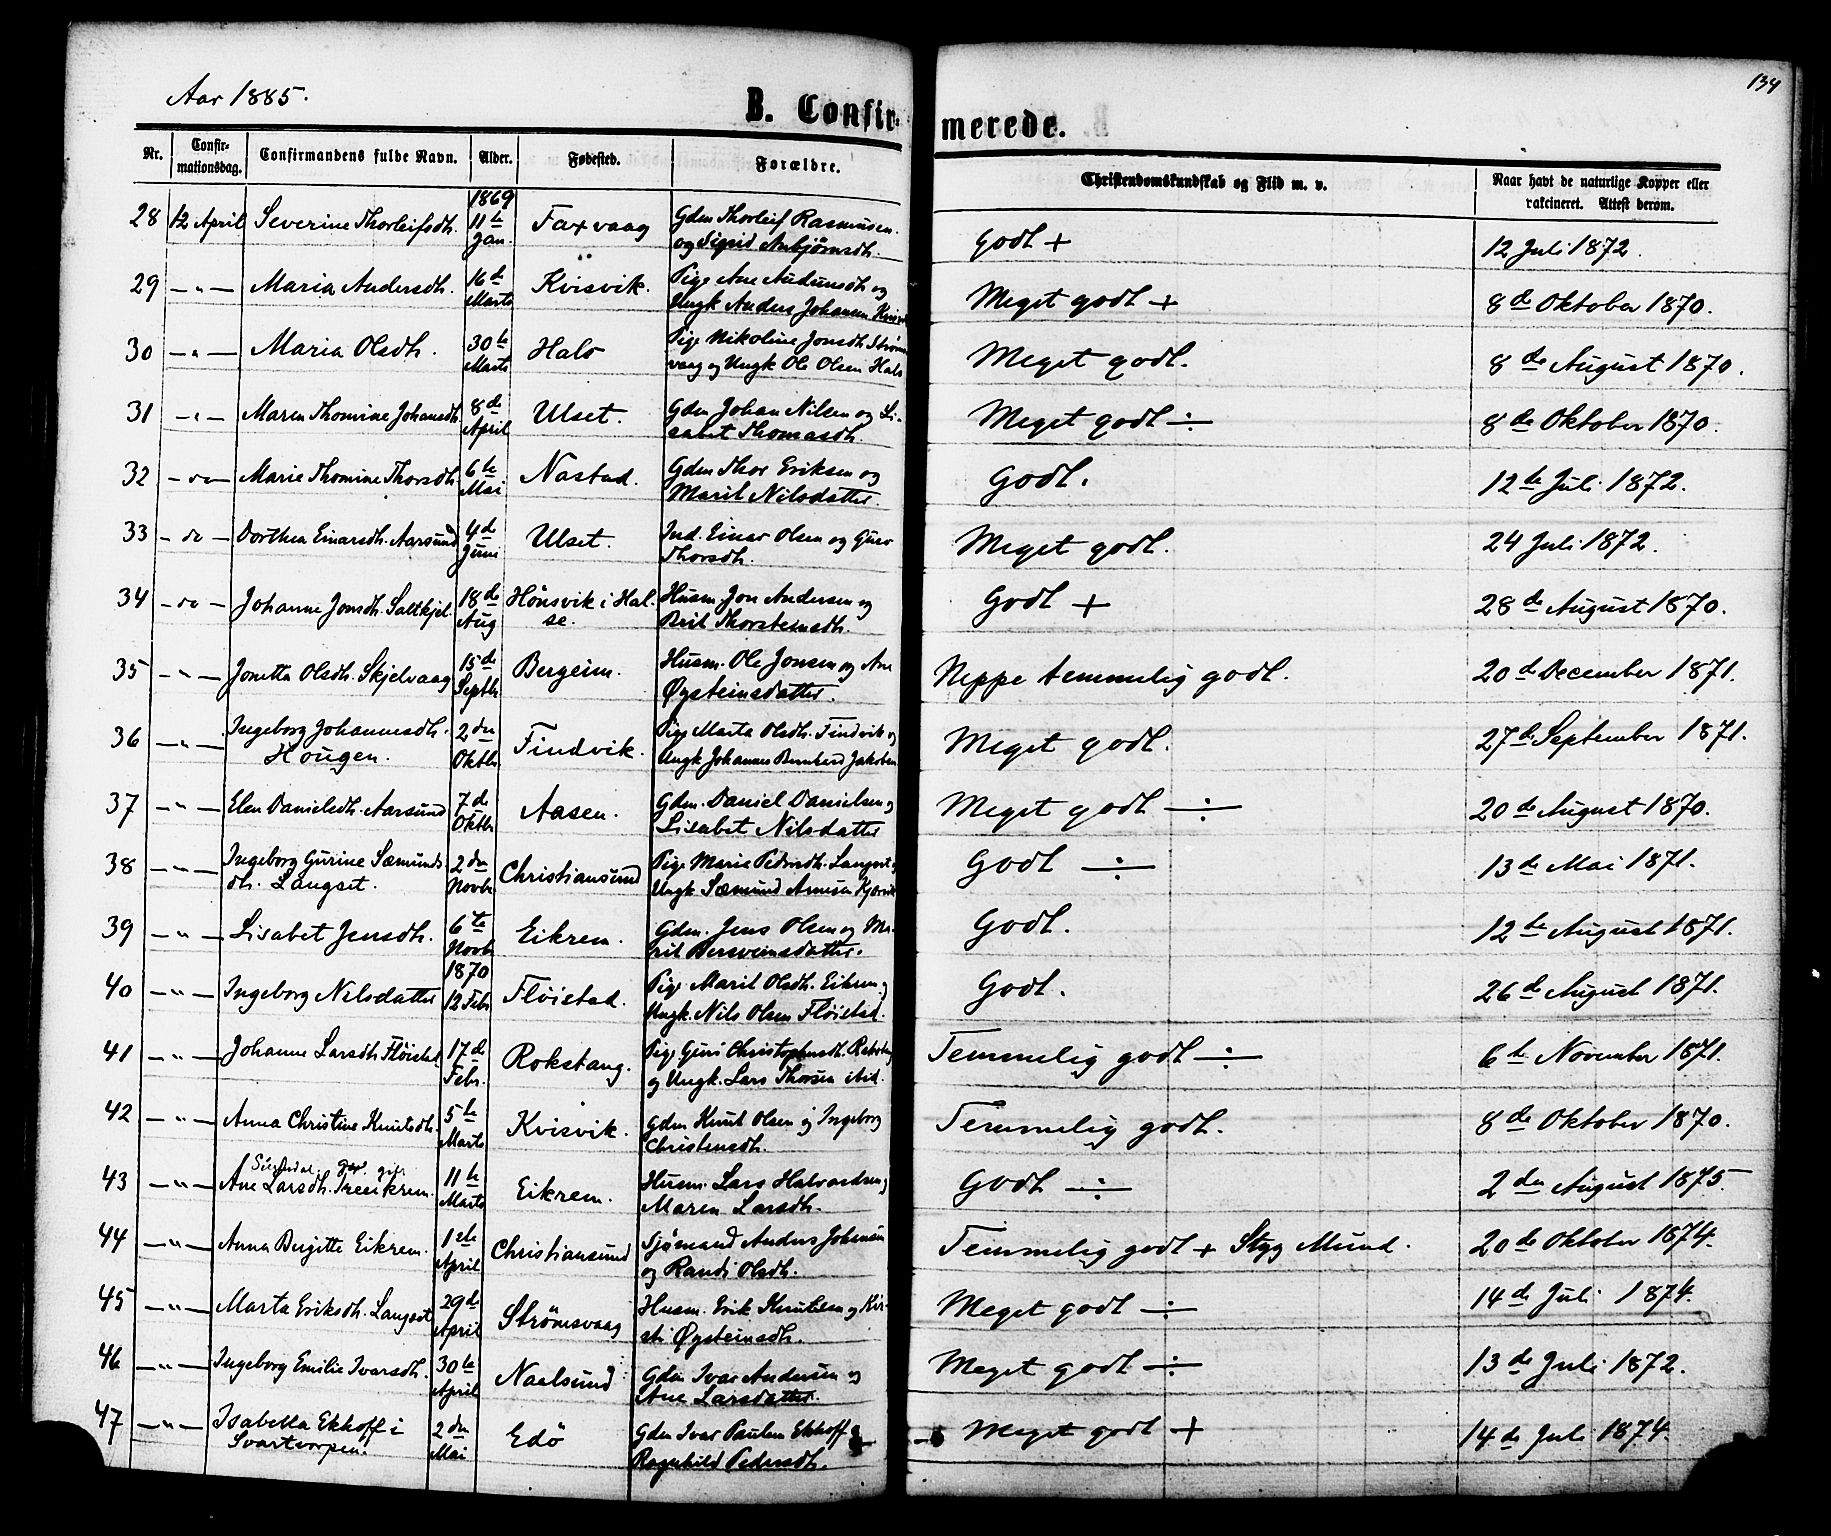 134
Aar 1885.
B. Confirmerede.
Nr. Confirmationsdag. Confirmandens fulde Navn. Alder. Fødested. Forældre. Christendomskundskab og Flid m. v. Naar havt de naturlige Kopper eller vakcineret. Attest derom.
28 12 April Severine Thorleifsdh. 1869 11te Jan. Faxvaag Gdm Thorleif Rasmusen og Sigrid Anbjørnsdh. Godt + 12 Juli 1872.
29 — " — Maria Andersdh. 16de Marts Kvisvik. Pige Ane Audunsdh og Ungk Anders Johansen Meget godt + 8de Oktober 1870.
30 — " — Maria Olsdh. 30te Marts Hals Pige Nikoline Jonsdh. Strømsvaag og Ungk Ole Olsen Hals Meget godt. 8de August 1870.
31 — " — Maren Thomine Johansdh 8de April Ulset. Gdm Johan Nilsen og Lisabet Thomasdh. Meget godt ÷ 8de Oktober 1870.
32 — do — Marie Thomine Thorsdh 6te Mai Nastad. Gdm Thor Eriksen og Marit Nilsdatter. Godt. 12te Juli 1872.
33 — do — Dorthea Einarsdh. Aarsund 4de Juni Ulset. Ind. Einar Olsen og Guro Thorsdh. Meget godt. 24 Juli 1872.
34 — do — Johanne Jonsdh. Saltkjel 18de Aug Hönsvik i Halse. Husm. Jon Andersen og Brit Thorsteinsdh. Godt + 28de August 1870.
35 — " — Jonetta Olsdh. Skjelvaag 15de Septbr Bergeim. Husm. Ole Jonsen og Ane Øysteinsdatter. Neppe temmelig godt. 20de December 1871.
36 — " — Ingeborg Johannesdh. Hougen. 2den Oktbr Findvik. Pige Marta Olsdh. Findvik og Ungk Johannes Bernhard Jakobsen Meget godt. 27de September 1871.
37 — " — Elen Danielsdh. Aarsund 7de Oktbr Aasen. Gdm. Daniel Danielsen og Lisabet Nilsdatter Meget godt ÷ 20de August 1870.
38 — " — Ingeborg Gurine Sæmundsdh. Langset. 2den Novbr Christiansund Pige Marie Pedersdh. Langset og Ungk Sæmund Arnesen Godt ÷ 13de Mai 1871.
39 — " — Lisabet Jensdh. 6te Novbr Eikrem. Gdm. Jens Olsen og Marit Bersveinsdatter. Godt. 12te August 1871.
40 — " — Ingeborg Nilsdatter 1870 12 Febr Flöistad. Pige Marit Olsdh. Eikrem og Ungk. Nils Olsen Flöistad. Godt. 26de August 1871.
41 — " — Johanne Larsdh Flöistad 17de Febr. Rokstang. Pige Guri Christophersdh. og Ungk. Lars Thorsen ibid. Temmelig godt ÷ 6te November 1871.
42 — " — Anna Christine Knutsdh. 5te Marts Kvisvik. Gdm Knut Olsen og Ingeborg Christensdh. Temmelig godt. 8de Oktober 1870.
43 — " — Ane Larsdh. 11te Marts Eikrem. Husm. Lars Halvardsen og Maren Larsdh. Godt ÷ 2den August 1875
44 — " — Anna Birgitte Eikrem. 1ste April Christiansund Sjømand Anders Johnsen og Randi Olsdh. Temmelig godt + Styg Mund. 20de Oktober 1874.
45 — " — Marta Eriksdh. Langset 29de April Strømsvaag Husm. Erik Knutsen og Kirsti Øysteinsdh. Meget godt ÷ 14de Juli 1874.
46 — " — Ingeborg Emilie Ivarsdh. 30te April Naalsund Gdm Ivar Andersen og Ane Larsdatter. Meget godt ÷ 13de Juli 1872.
47 — " — Isabella Ekhoff i Svartvorpen. 2den Mai Edö Gdm Ivar Paulsen Ekhoff og Ragnhild Pedersdh. Meget godt + 14de Juli 1874.